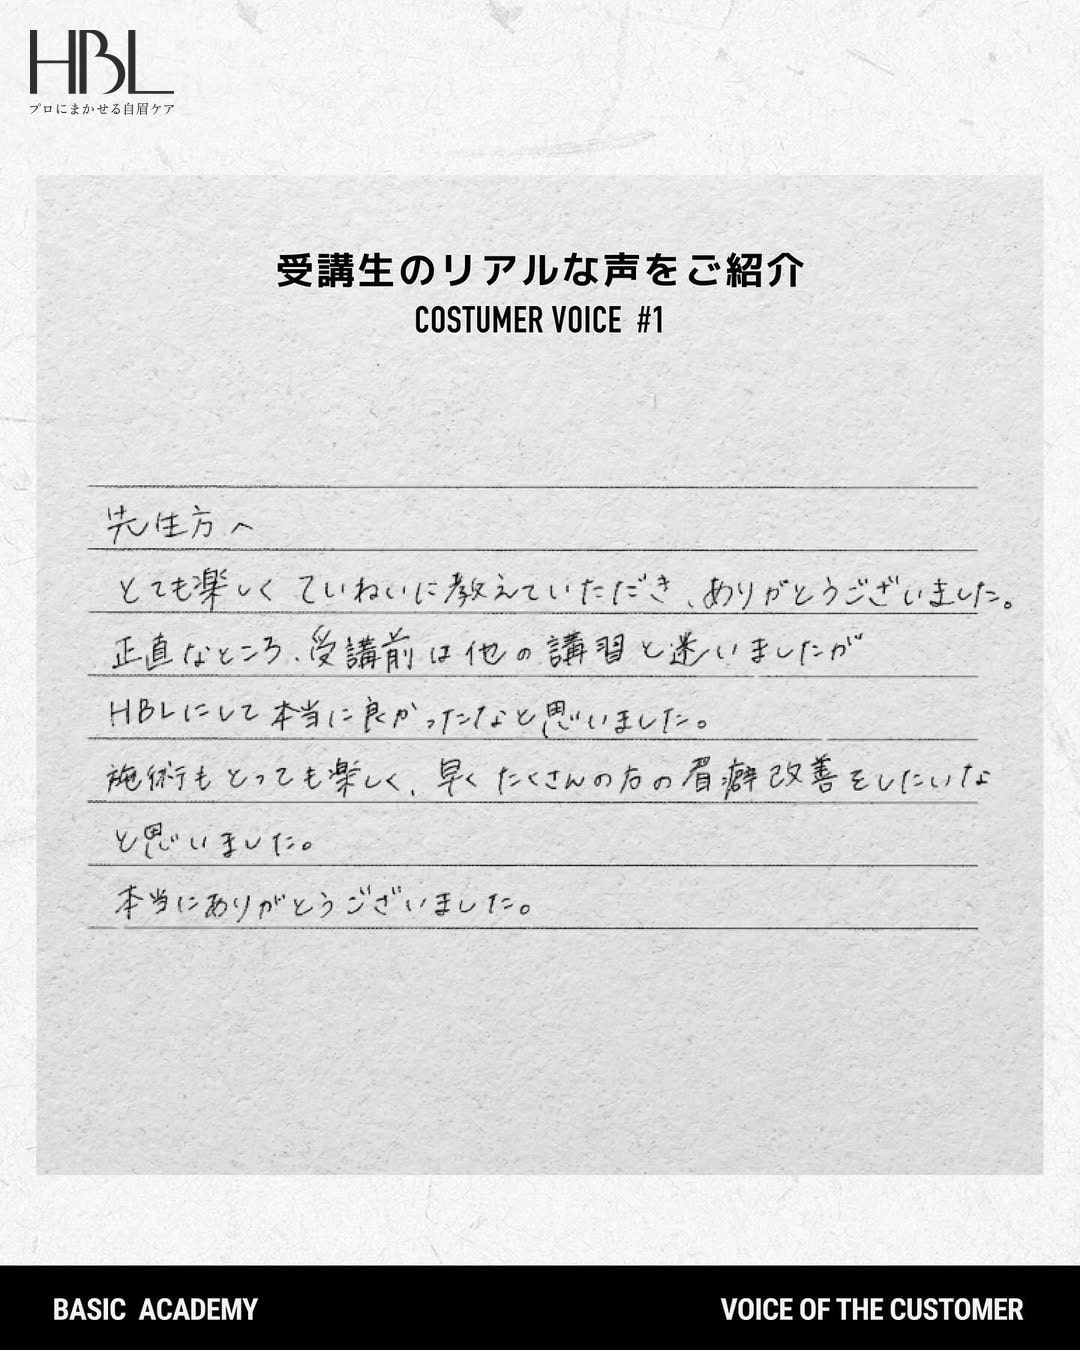 HBL
プロにまかせる自眉ケア
受講生のリアルな声をご紹介
COSTUMER VOICE #1
先生方へ
とても楽しくていねいに教えていただき、ありがとうございました。
正直なところ、受講前は他の講習と迷いましたが
HBLにして本当に良かったなと思いました。
施術もとっても楽しく、早くたくさんの方の眉癖改善をしたいな
と思いました。
本当にありがとうございました。
BASIC ACADEMY
VOICE OF THE CUSTOMER